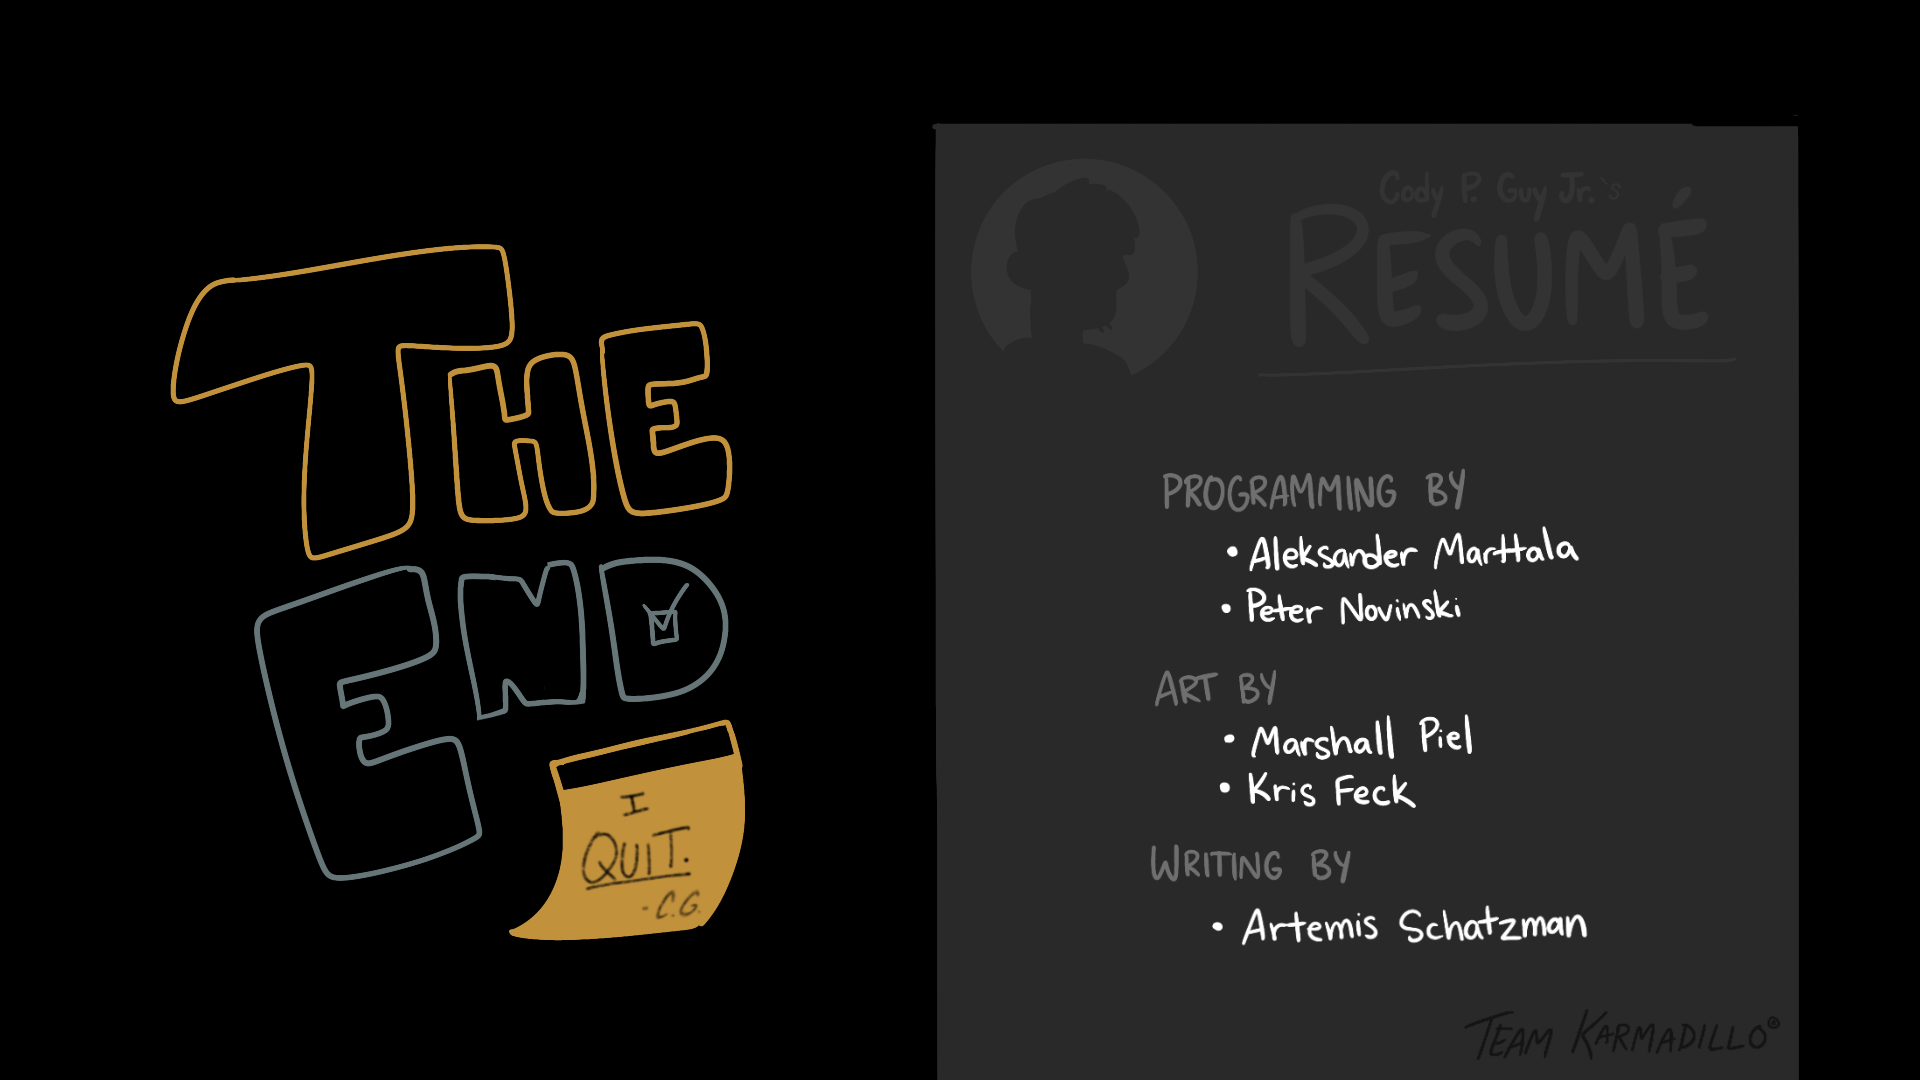 THE
END
I
QUIT.
- C.G.
Cody P. Guy Jr.'s
RESUMÉ
PROGRAMMING BY
• Aleksander Marttala
• Peter Novinski
ART BY
• Marshall Piel
• Kris Feck
WRITING BY
• Artemis Schatzman
TEAM KARMADILLO©